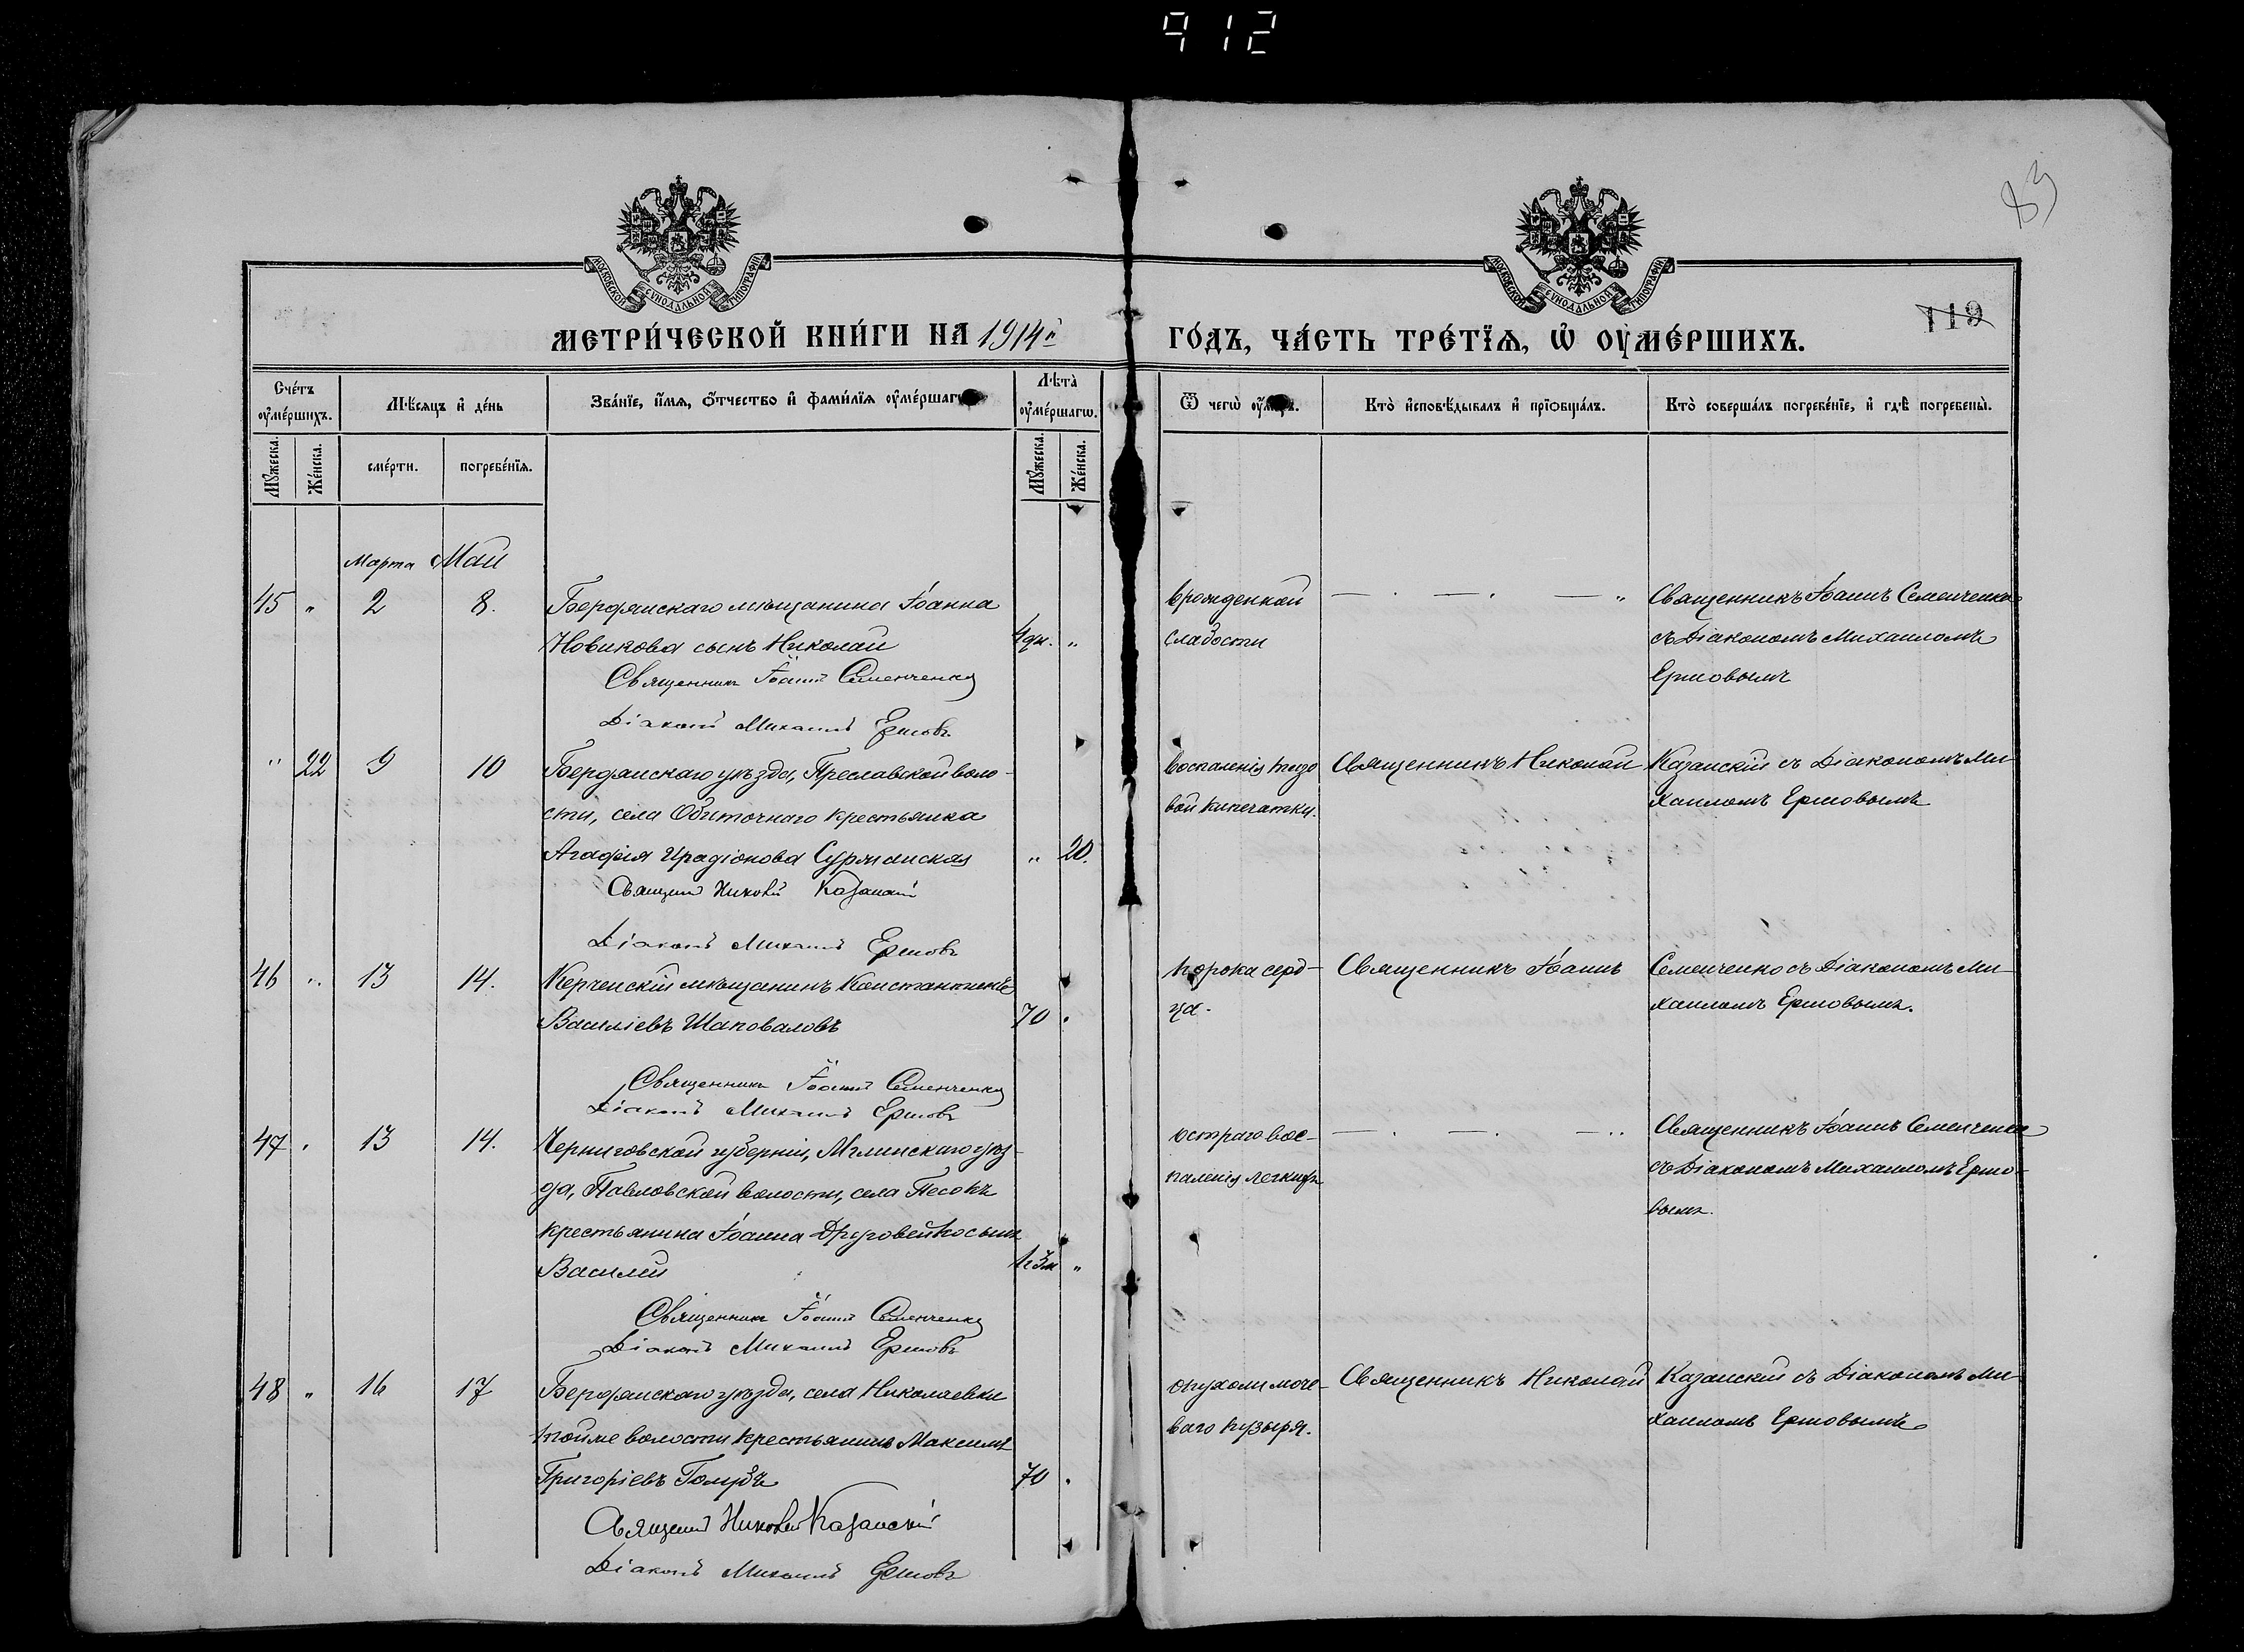 912
83
МОСКОВСКОЙ СѴНОДАЛЬНОЙ ТИПОГРАФІИ
МОСКОВСКОЙ СѴНОДАЛЬНОЙ ТИПОГРАФІИ
119
МЕТРИ́ЧЕСКОЙ КНИ́ГИ НА 1914й ГО́ДЪ, ЧА́СТЬ ТРЕ́ТЇѦ, Ѡ ОУМЕ́РШИХЪ.
Сче́тъ оу҆ме́ршихъ.
Мꙋ́жеска.
Же́нска.
Мѣ́сяцъ и҆ де́нь
сме́рти.
погребе́нїѧ.
Зва́нїе, и҆́мѧ, ѻ҆́тчество и҆ фами́лїѧ оу҆ме́ршагѡ.
Лѣ́та оу҆ме́ршагѡ.
Мꙋ́жеска.
Же́нска.
Ѿ чегѡ̀ оу҆́меръ.
Кто̀ и҆сповѣ́дывалъ и҆ прїѡбща́лъ.
Кто̀ соверша́лъ погребе́нїе, и҆ гдѣ̀ погребены̀.
Марта Май
45 " 2 8. Бердянскаго мѣщанина Іоанна
Новикова сынъ Николай 4дн. "
Священникъ Іоаннъ Семенченко
Діаконъ Михаилъ Ершовъ
врожденной
слабости
Священникъ Іоаннъ Семенченко
съ Діакономъ Михаиломъ
Ершовымъ
" 22 9 10 Бердянскаго уѣзда, Преславской воло-
сти, села Обиточнаго крестьянка
Агафія Ирадіонова Суржанская " 20.
Священ Николай Казанскій
Діаконъ Михаилъ Ершовъ
воспаленія тазо
вой клетчатки.
Священникъ Николай Казанскій съ Діакономъ Ми-
хаиломъ Ершовымъ
46 " 13 14. Керченскій мѣщанинъ Константинъ
Василіевъ Шаповаловъ 70 "
Священникъ Іоаннъ Семенченко
Діаконъ Михаилъ Ершовъ
порока серд-
ца.
Священникъ Іоаннъ Семенченко съ Діакономъ Ми-
хаиломъ Ершовымъ.
47 " 13 14. Черниговской губерніи, Мглинскаго уѣз-
да, Павловской волости, села Песокъ
крестьянина Іоанна сынъ
Василій 1г3м "
Священникъ Іоаннъ Семенченко
Діаконъ Михаилъ Ершовъ
остраго вос-
паленія легкихъ
Священникъ Іоаннъ Семенченко
съ Діакономъ Михаиломъ Ершо-
вымъ.
48 " 16 17 Бердянскаго уѣзда, села Николаевки
той же волости крестьянинъ Максимъ
Григоріевъ Голубъ 70 "
Священ Николай Казанскій
Діаконъ Михаилъ Ершовъ
опухоли моче-
ваго пузыря.
Священникъ Николай Казанскій съ Діакономъ Ми-
хаиломъ Ершовымъ